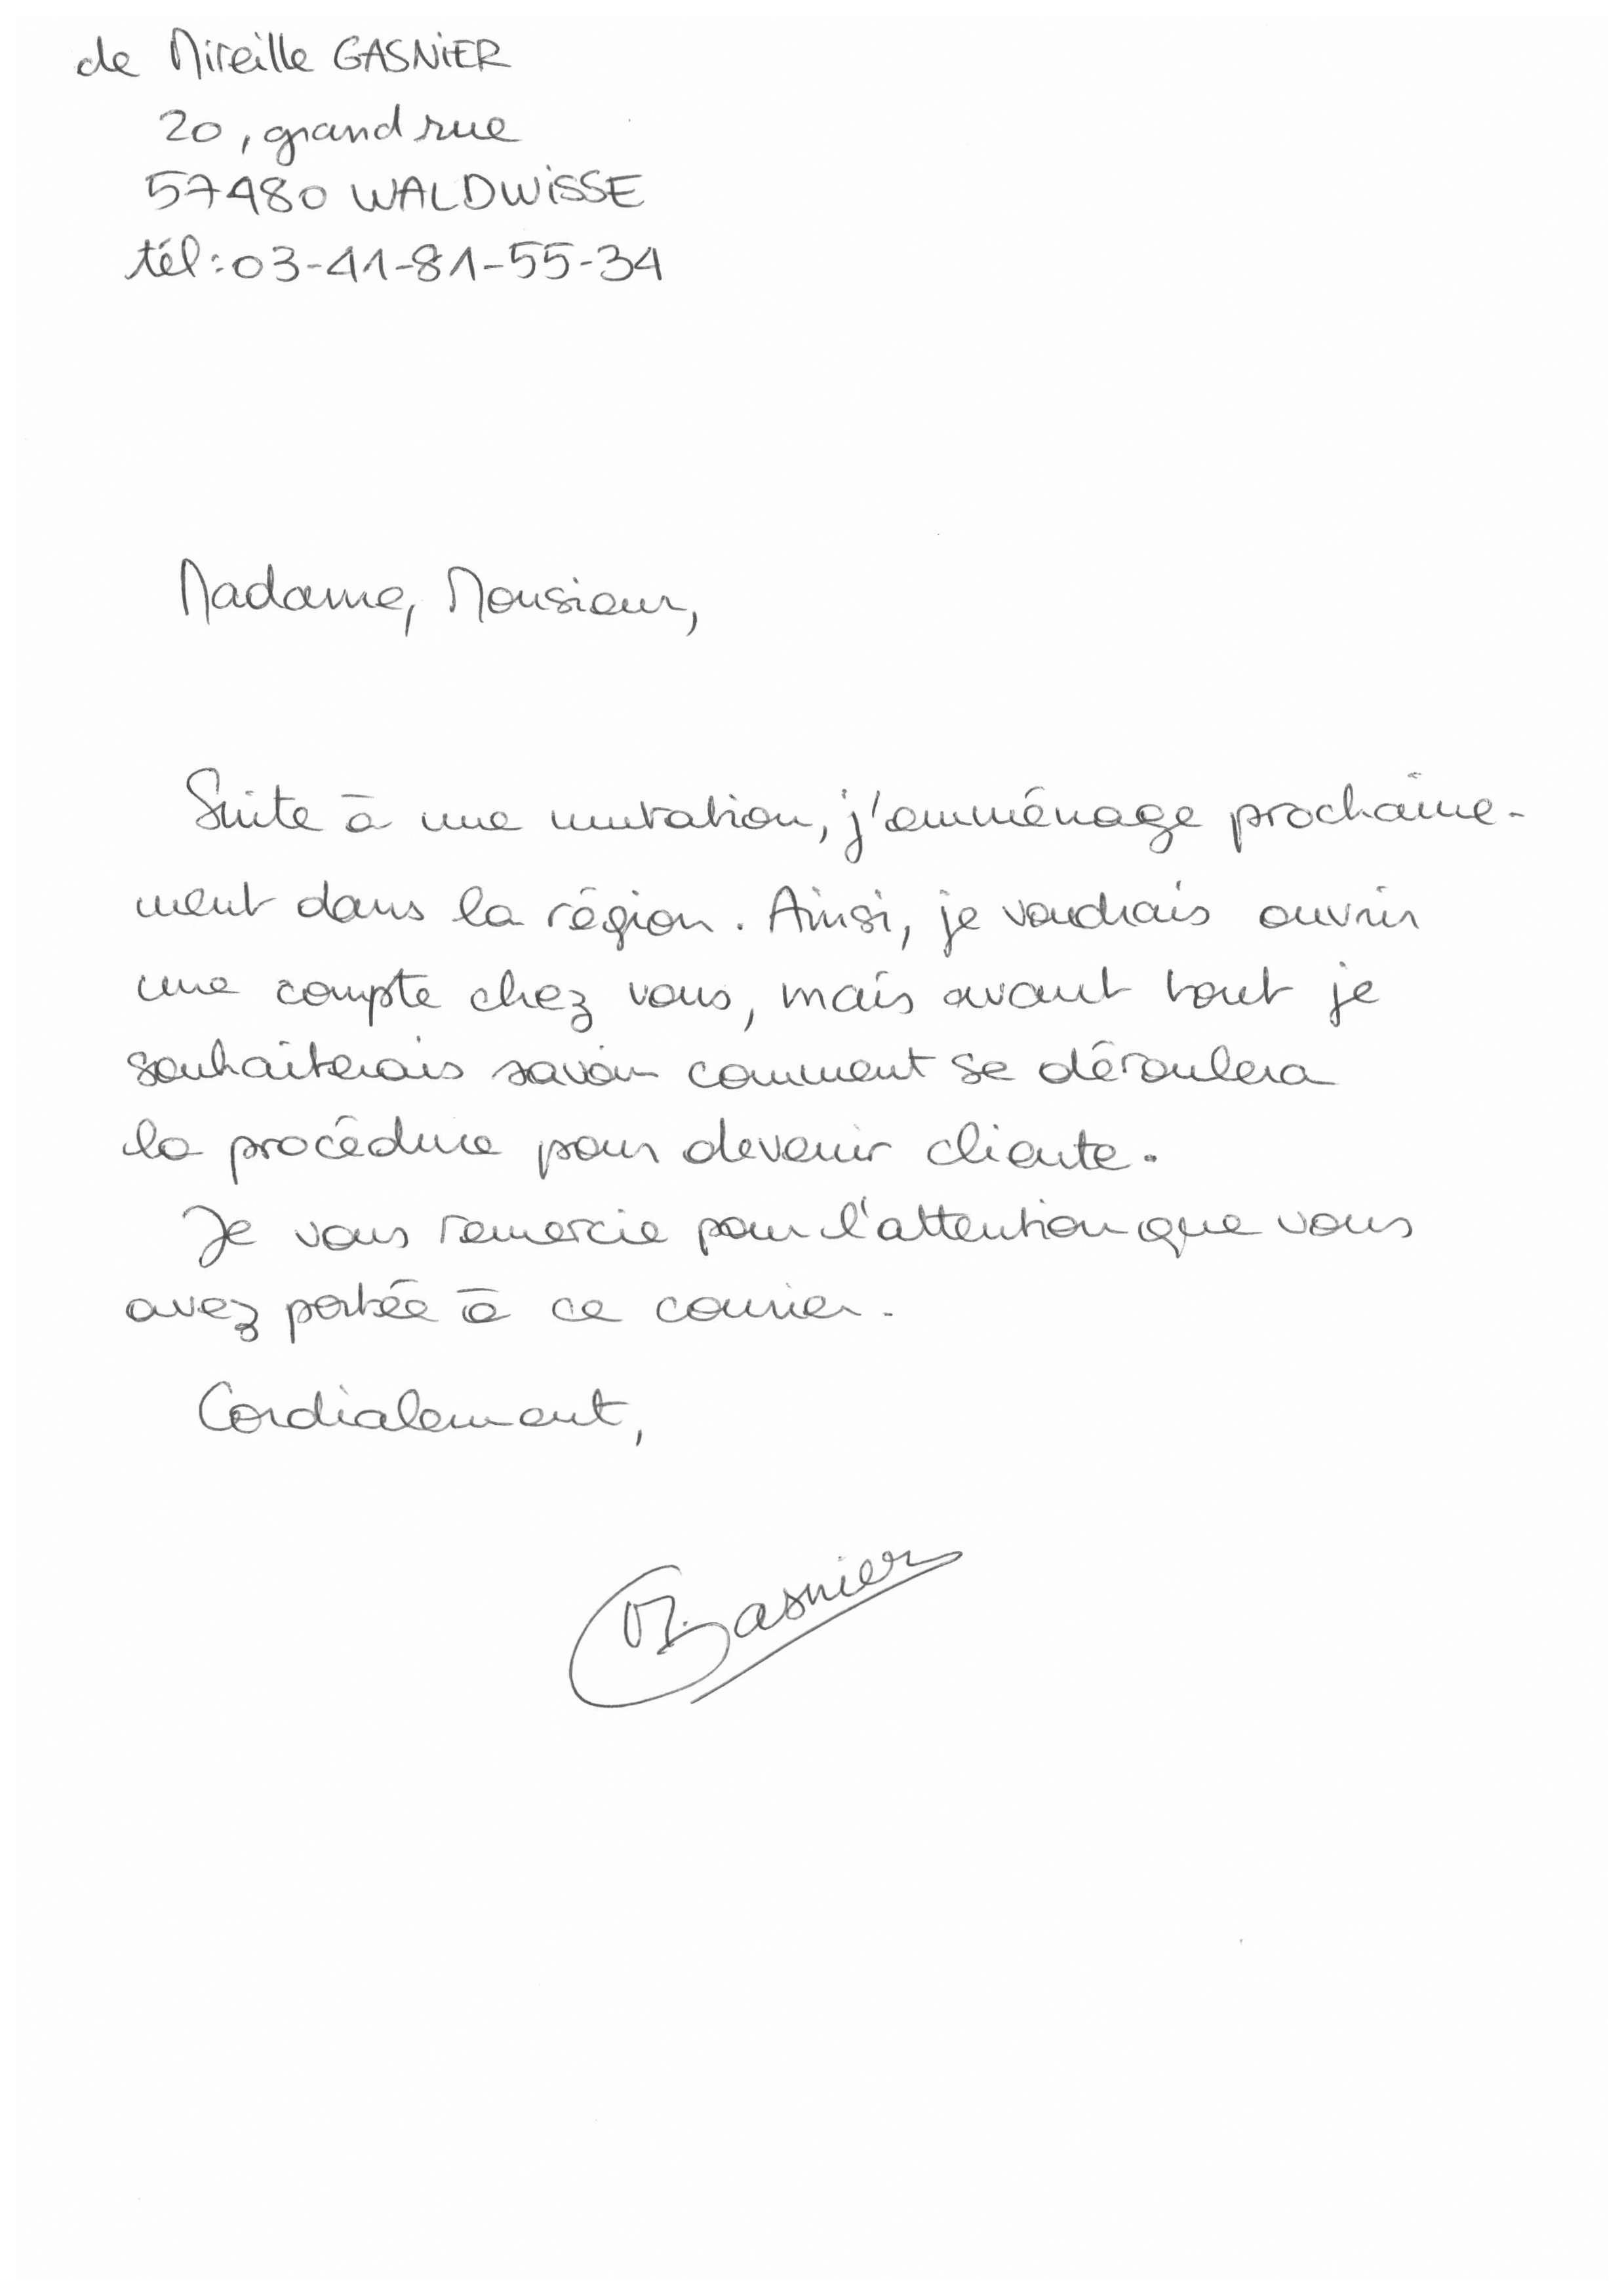 de Mireille GASNiER
20, grand rue
57480 WALDWiSSE
tél:03-41-81-55-34
Madame, Monsieur,
Suite à une mutation, j'emménage prochaine-
ment dans la région. Ainsi, je voudrais ouvrir
une compte chez vous, mais avant tout je
souhaiterais savoir comment se déroulera
la procédure pour devenir cliente.
Je vous remercie pour l'attention que vous
avez portée à ce courrier.
Cordialement,
M.Gasnier